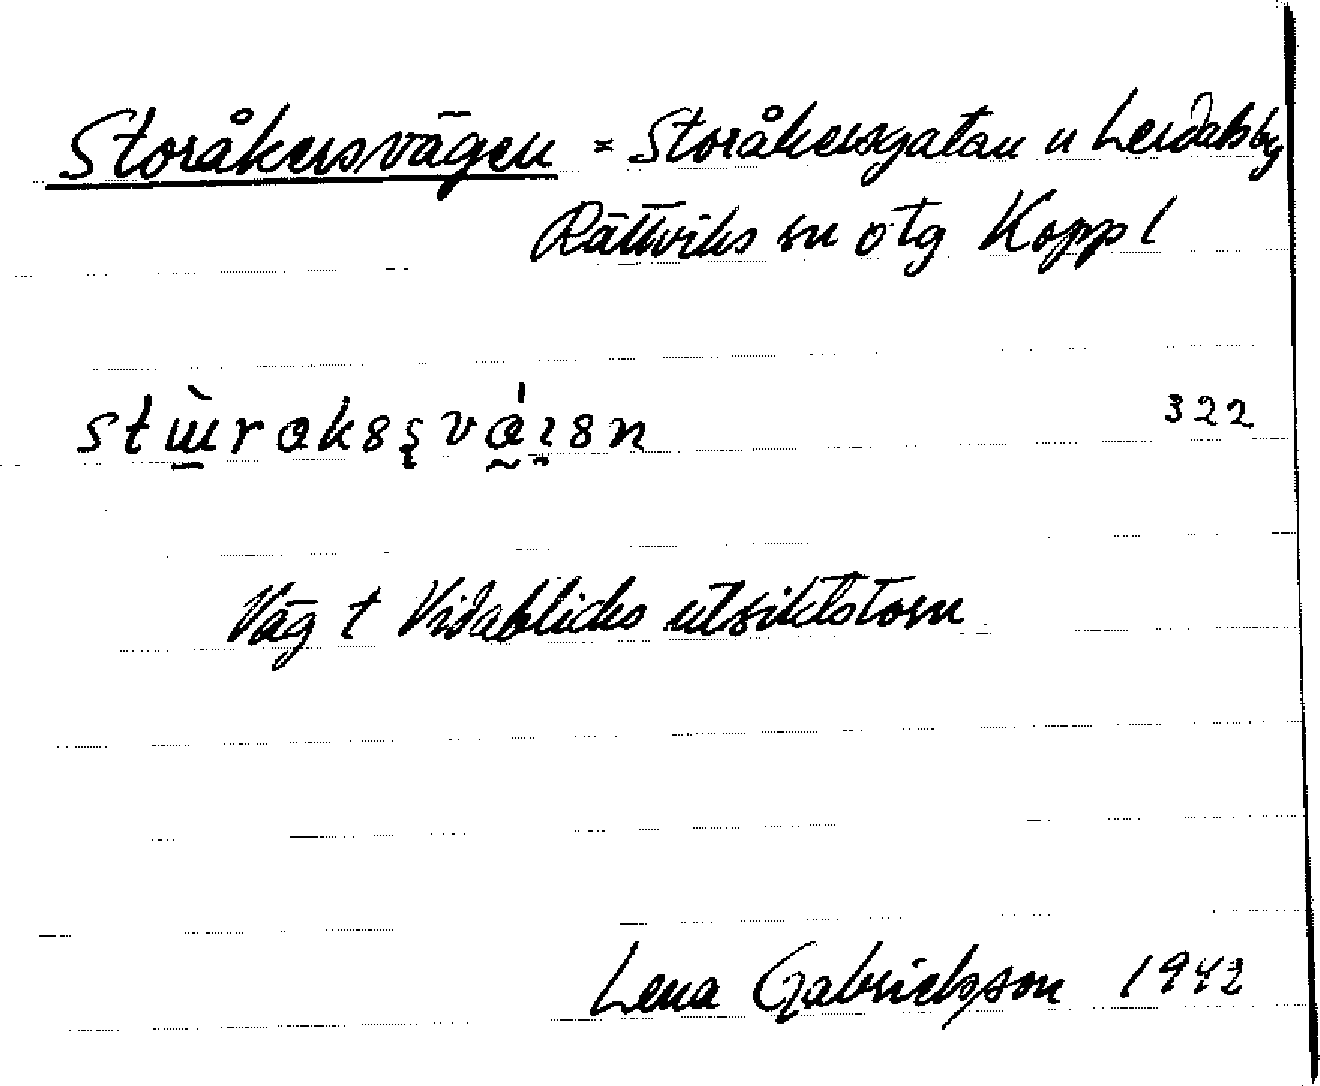 Storåkersvägen = Storåkersgatan u Lerdalsby
Rättviks sn otg Kopp l
322
Väg t Vidablicks utsiktstorn
Lena Gabrielsson 1942